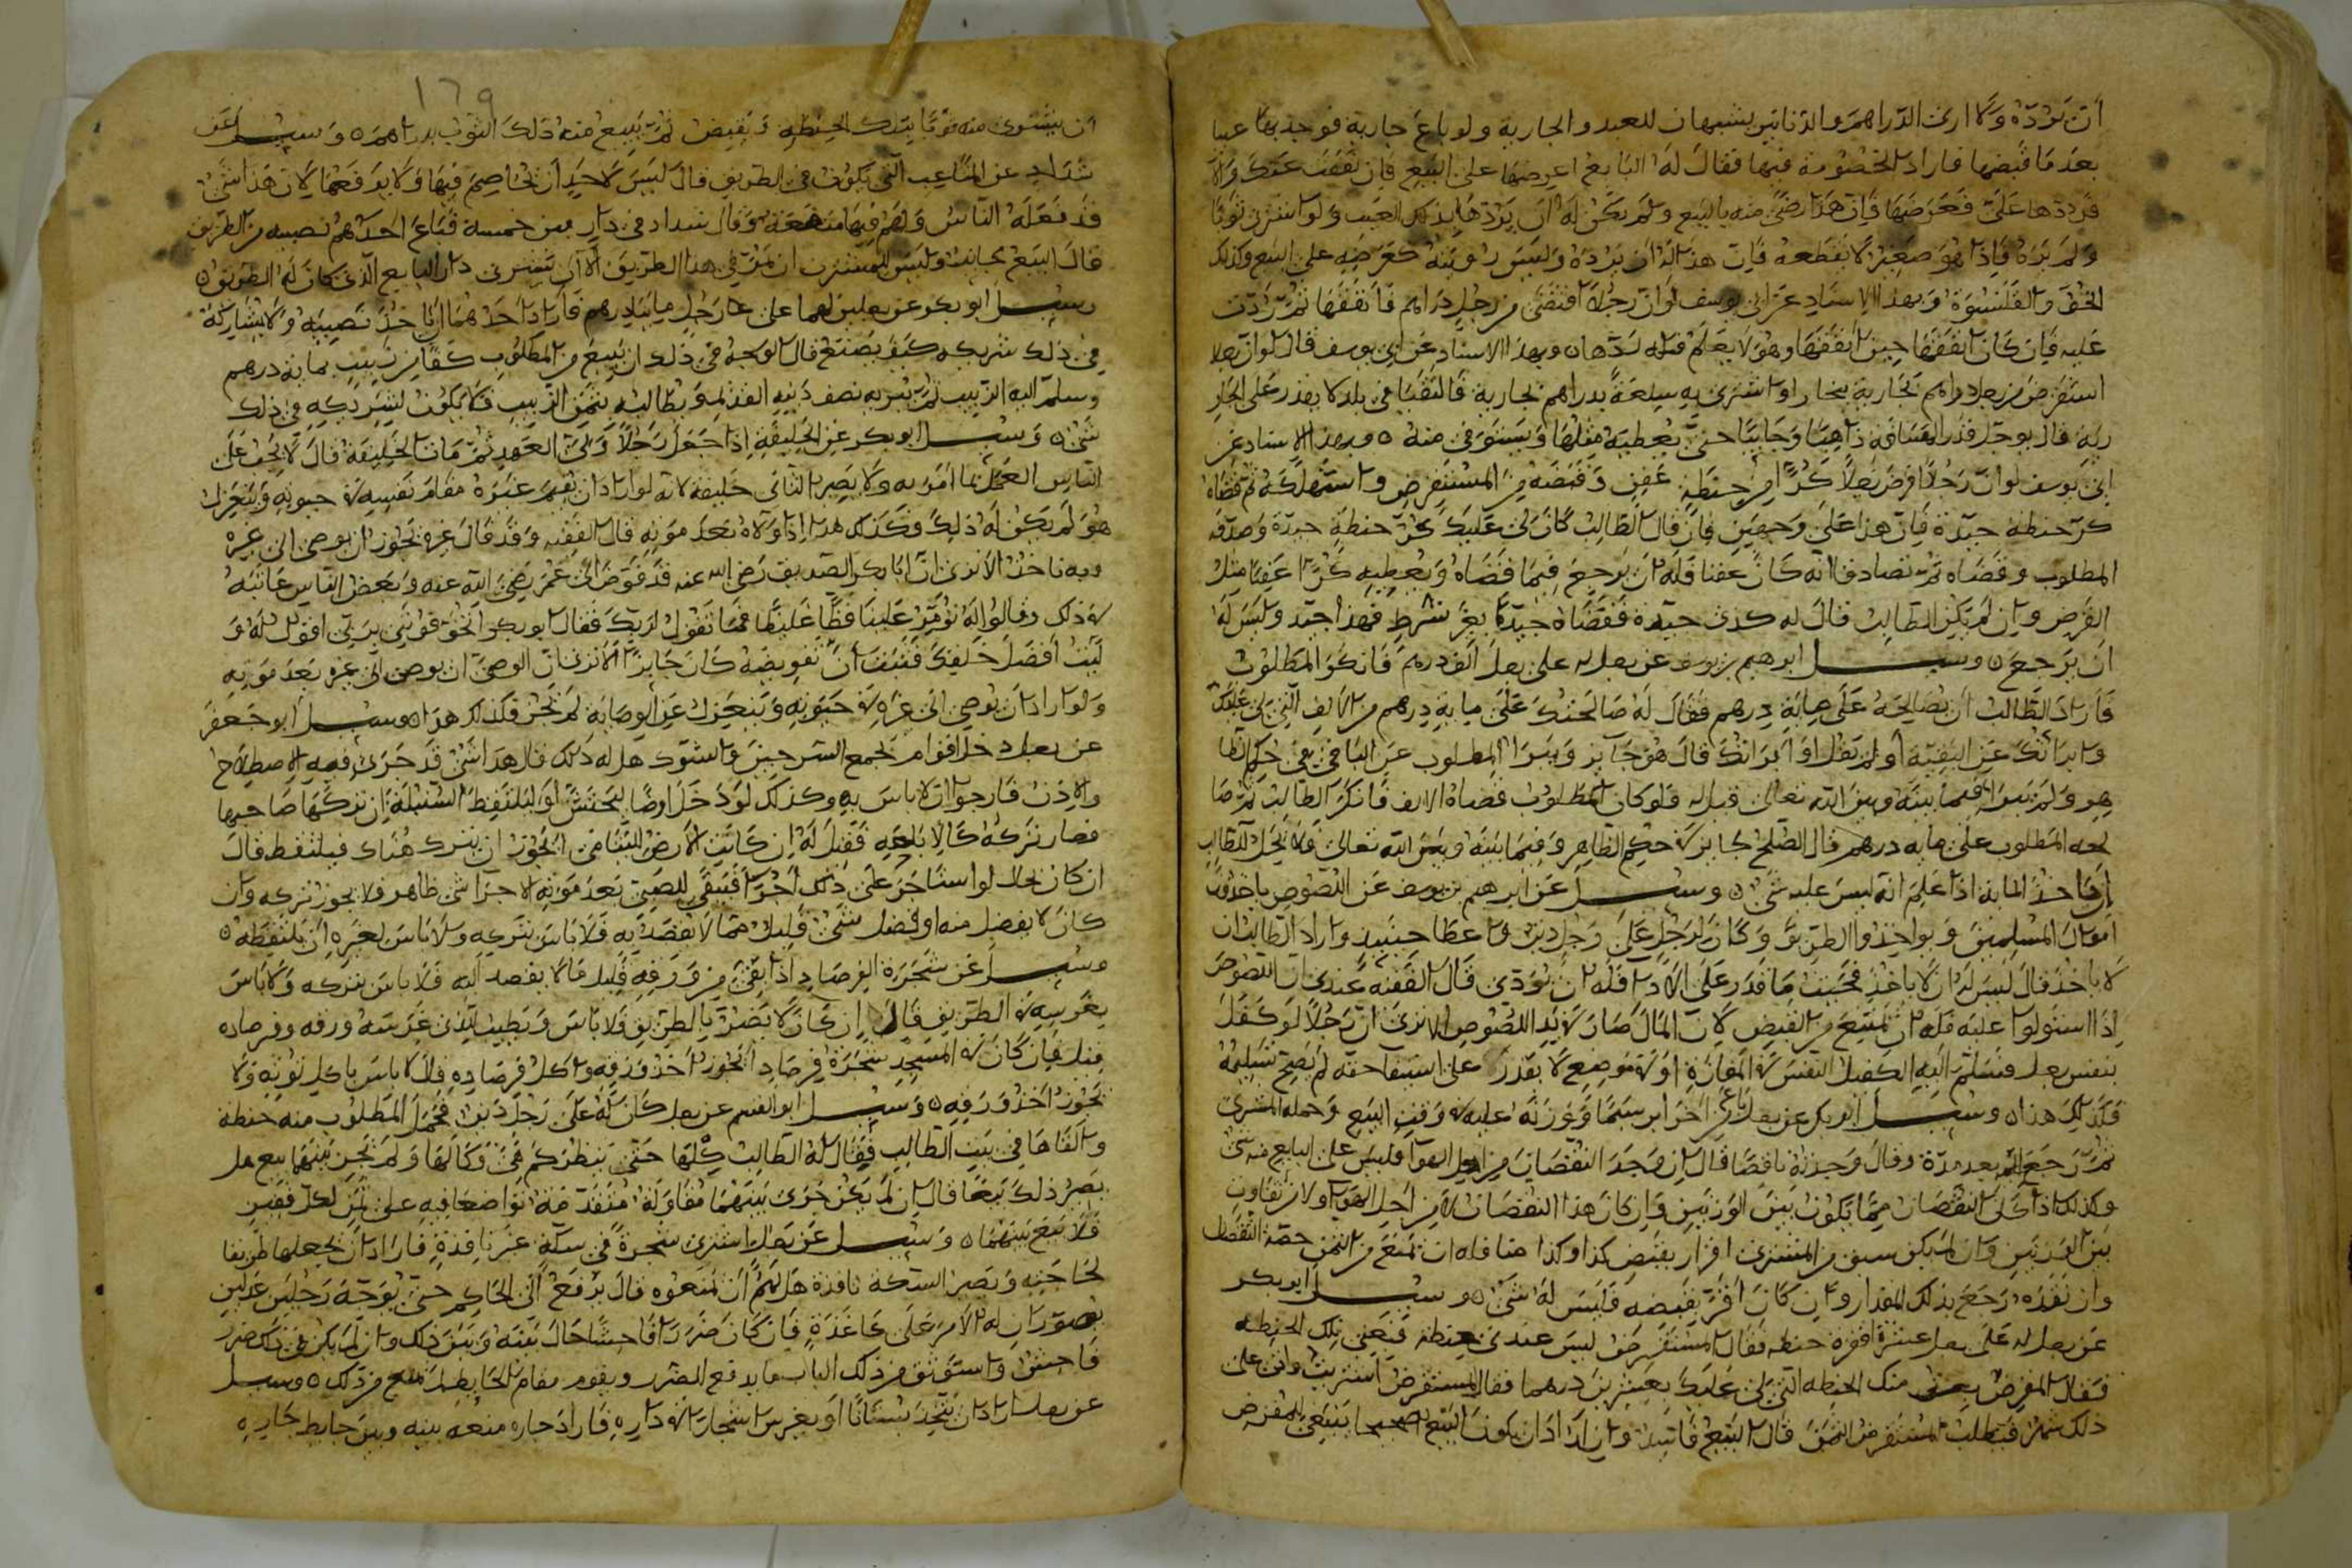 أن يرده ولا أرى الدراهم والدنانير يشبهان للعبد والجارية ولو باع جارية فوجد بها عيبا
بعد ما قبضها فأراد الخصومة فيها فقال له البائع اعرضها على البيع فإن نفقت عنك والا
فردها علي فعرضها فإن هذا رضى منه بالبيع ولم يكن له أن يردها بذلك العيب ولو اشترى ثوبا
ولم يره فإذا هو صغير لا يقطعه فإن هذا له أن يرده وليس رؤيته كعرضه على البيع وكذلك
الخف والقلنسوة وبهذا الاسناد عن ابي يوسف لو ان رجلا اقتضى من رجل دراهم فأنفقها ثم ردت
عليه فإن كان أنفقها حين أنفقها وهو لا يعلم فله ردها وبهذا الاسناد عن ابي يوسف قال لو ان رجلا
استقرض من رجل دراهم بخارية ببخارا او اشترى به سلعة بدراهم بخارية فالتقيا في بلد لا يقدر على البخارية
قال يؤجل قدر المسافة ذاهبا وجائيا حتى يعطيه مثلها ويستوفي منه وبهذا الاسناد عن
ابي يوسف لو ان رجلا اقرض رجلا كرا من حنطة عفن وقبضه المستقرض واستهلكه ثم قضاه
كر حنطة جيدة فإن هذا على وجهين فإن قال الطالب كان لي عليك كر حنطة جيدة وصدقه
المطلوب وقضاه ثم تصادقا انه كان عفنا فله ان يرجع فيما قضاه ويعطيه كرا عفنا مثل
القرض وان لم يكن الطالب قال له كذى جيدة فقضاه جيدا بغير شرط فهذا جيد وليس له
ان يرجع وسئل ابرهيم بن يوسف عن رجل له على رجل الف درهم فانكر المطلوب
فأراد الطالب أن يصالحه على مائة درهم فقال له صالحتك على مائة درهم من الالف التي لي عليك
وابرأتك عن البقية أو لم يقل أو أبرأتك قال هو جائز ويبرأ المطلوب عن الباقي في حكم الظاهر
ولم يبرأ فيما بينه وبين الله تعالى قيل له فلو كان المطلوب قضاه الالف فانكر الطالب ثم صا
لحه المطلوب على مائة درهم قال الصلح جائز في حكم الظاهر وفيما بينه وبين الله تعالى ولا يحل للطالب
أن يأخذ المائة اذا علم انه ليس عليه شئ وسئل عن ابرهيم بن يوسف عن اللصوص يأخذون
أموال المسلمين وكان لرجل على رجل دين واراد الطالب ان
لا يأخذ قال ليس له ان لا يأخذ فحيث ما قدر على الاداء فله ان يؤدي قال الفقيه عندي ان اللصوص
اذا استولوا عليه فله ان يمتنع من القبض لان المال صار في يد اللصوص الا ترى ان رجلا لو كفل
بنفس رجل فسلم اليه الكفيل النفس في المفازة او في موضع لا يقدر على استيفا حقه لم يصح تسليمه
فكذلك هذا وسئل ابو بكر عن رجل باع من آخر ابريسما ووزنه عليه في وقت البيع وحمله المشترى
ثم رجع اليه بعد مدة وقال وجدته ناقصا قال ان وجد النقصان من اجل الهوا فليس على البايع منه شئ
وكذلك اذا كان النقصان مما يكون بين الوزنين وان كان هذا النقصان لا من اجل الهوا ولا من تفاوت
بين الوزنين وان لم يكن سبق من المشترى اقرار بقبض كذا وكذا منا فله ان يمنع من الثمن حصة النقصان
وان نقده رجع بذلك المقدار وان كان أقر بقبضه فليس له شئ وسئل ابو بكر
عن رجل له على رجل عشرة اقفزة حنطة فقال المستقرض ليس عندي حنطة فبعني تلك الحنطة
فقال المقرض بعتك منك الحنطة التي لي عليك بعشرين درهما فقال المستقرض اشتريت
ذلك فيطلب المستقرض الثمن قال البيع فاسد وان ارادا ان يكون البيع صحيحا ينبغي للمقرض
١٦٩
ان يشترى منه ثوبا بتلك الحنطة ويقبض ثم يبيع منه ذلك الثوب بدراهم وسئل عن
شداد عن المثاعب التي تكون في الطريق قال ليس لاحد أن يخاصم فيها ولا يدفعها لان هذا شئ
قد فعله الناس ولهم فيها منفعة وقال شداد في دار بين خمسة فباع احدهم نصيبه من الطريق
قال البيع جائز وليس للمشترى ان يمر في هذا الطريق الا أن يشترى دار البايع الذي كان له الطريق
وسئل ابو بكر عن رجلين لهما على رجل مايتا درهم فأراد احدهما ان ياخذ نصيبه ولا يشاركه
في ذلك شريكه كيف يصنع قال الوجه في ذلك ان يبيع من المطلوب كفا من زبيب بمائة درهم
وسلم اليه الزبيب ثم يبريه نصف دينه القديم ويطالبه بثمن الزبيب فلا يكون لشريكه في ذلك
شئ وسئل ابو بكر عن الخليفة اذا جعل رجلا ولى العهد ثم مات الخليفة قال لا يجب على
الناس العمل بما أمر به ولا يصير الثاني خليفة لانه لو اراد ان يقيم غيره مقام نفسه في حيوته ويتعزل
هو لم يكن له ذلك وكذلك هذا اذا ولاه بعد موته قال الفقيه وقد قال غيره يجوز ان يوصى الى غيره
وبه ناخذ الا ترى ان ابا بكر الصديق رضي الله عنه قد فوض الى عمر رضي الله عنه وبعض الناس عاتبه
في ذلك وقالوا له تؤمر علينا فظا غليظا فما تقول لربك فقال ابو بكر اتخوفونني بربي اقول له و
ليت أفضل خلقك فثبت أن تفويضه كان جايزا الا ترى ان الوصي ان يوصى الى غيره بعد موته
ولو اراد ان يوصى الى غيره في حيوته ويتعزل عن الوصاية لم يجز فكذلك هذا وسئل أبو جعفر
عن رجل دخل اقوام لجمع السرجين والشوك هل له ذلك قال هذا شئ قد جرى فيه الاصطلاح
والاذن فارجوا ان لا باس به وكذلك لو دخل ارضا ليحتش او ليلتقط السنبلة ان تركها صاحبها
فصار تركه كالاباحة فقيل له ان كانت الارض لليتامى ايجوز ان يترك هناك فيلتقط قال
ان كان بحال لو استاجر على ذلك أجيرا يبقى للصبي بعد مؤنة الاجراء شئ ظاهر فلا يجوز تركه وان
كان لا يفضل منه او فضل شئ قليل مما لا يقصد اليه فلا باس بتركه ولا باس لغيره ان يلتقطه
وسئل عن شجرة الفرصاد اذا بقى من ورقه قليل ما لا يقصد اليه فلا باس بتركه ولا باس
بغرسه في الطريق قال ان كان لا يضر بالطريق فلا باس ويطيب للذي غرسه ورقه وفرصاده
قيل فان كان في المسجد شجرة فرصاد ايجوز اخذ ورقه واكل فرصاده قال لا باس باكل توته ولا
يجوز اخذ ورقه وسئل ابو القسم عن رجل كان له على رجل دين فحمل المطلوب منه حنطة
والقاها في بيت الطالب فقال له الطالب كلها حتى ننظركم هي فكالها ولم يجر بينهما بيع هل
يصير ذلك بيعا قال ان لم يكن جرى بينهما مقاولة متقدمة تواضعا فيه على ثمن لكل قفيز
فلا بيع بينهما وسئل عن رجل اشترى شجرة في سكة غير نافذة فأراد ان يجعلها طريقا
لحاجته وتصير السكة نافذة هل لهم أن يمنعوه قال يرفع الى الحاكم حتى يوجه رجلين عدلين
يصوران له الأمر على كاغذة فان كان ضررا فاحشا حال بينه وبين ذلك وان لم يكن في ذلك ضرر
فاحش واستوثق من ذلك الباب ما يدفع الضرر ويقوم مقام الحايط لم يمنع من ذلك وسئل
عن رجل اراد ان يتخذ بستانا أو يغرس اشجارا في داره فاراد جاره منعه بينه وبين حايط جاره